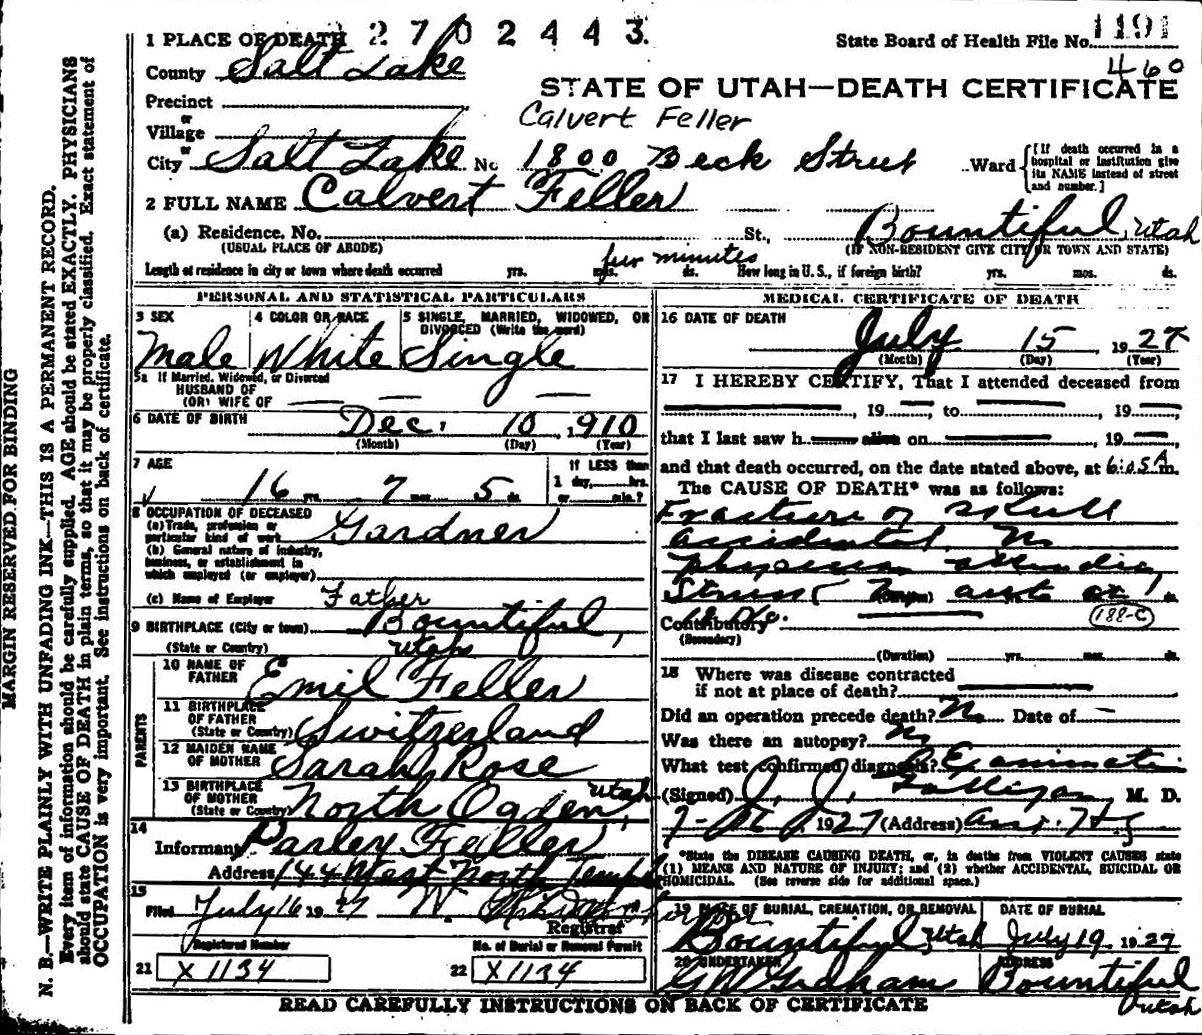 MARGIN RESERVED FOR BINDING
N. B.—WRITE PLAINLY WITH UNFADING INK—THIS IS A PERMANENT RECORD.
Every item of information should be carefully supplied. AGE should be stated EXACTLY. PHYSICIANS
should state CAUSE OF DEATH in plain terms, so that it may be properly classified. Exact statement of
OCCUPATION is very important. See instructions on back of certificate.
1 PLACE OF DEATH 2702443
State Board of Health File No. 1191
460
County Salt Lake
STATE OF UTAH—DEATH CERTIFICATE
Precinct
or
Village
Calvert Feller
or
City Salt Lake No. 1800 Beck Street Ward
[If death occurred in a
hospital or institution give
its NAME instead of street
and number.]
2 FULL NAME Calvert Feller
(a) Residence. No. St., Bountiful, Utah
(USUAL PLACE OF ABODE) (IF NON-RESIDENT GIVE CITY OR TOWN AND STATE)
Length of residence in city or town where death occurred yrs. mos. few minutes ds. How long in U. S., if foreign birth? yrs. mos. ds.
PERSONAL AND STATISTICAL PARTICULARS
3 SEX
Male
4 COLOR OR RACE
White
5 SINGLE, MARRIED, WIDOWED, OR
DIVORCED (Write the word)
Single
5a If Married, Widowed, or Divorced
HUSBAND OF
(OR) WIFE OF
6 DATE OF BIRTH Dec. 10, 1910
(Month) (Day) (Year)
7 AGE
16 yrs. 7 mos. 5 ds.
If LESS than
1 day, hrs.
or min.?
8 OCCUPATION OF DECEASED
(a) Trade, profession or
particular kind of work Gardner
(b) General nature of industry,
business, or establishment in
which employed (or employer)
(c) Name of Employer Father
9 BIRTHPLACE (City or town) Bountiful,
(State or Country) Utah
PARENTS
10 NAME OF
FATHER Emil Feller
11 BIRTHPLACE
OF FATHER
(State or Country) Switzerland
12 MAIDEN NAME
OF MOTHER Sarah Rose
13 BIRTHPLACE
OF MOTHER
(State or Country) North Ogden, Utah
14
Informant Parley Feller
Address 144 West North Temple
15
Filed July 16 1927
Registrar
Registered Number
21 X1134
No. of Burial or Removal Permit
22 X1134
MEDICAL CERTIFICATE OF DEATH
16 DATE OF DEATH
July 15 1927
(Month) (Day) (Year)
17 I HEREBY CERTIFY, That I attended deceased from
, 19 , to , 19 ,
that I last saw h alive on , 19 ,
and that death occurred, on the date stated above, at 6:05 A m.
The CAUSE OF DEATH* was as follows:
Fracture of skull
accidental. No
physician attending
Struck auto
Contributory 188-C
(Secondary)
(Duration) yrs. mos. ds.
18 Where was disease contracted
if not at place of death?
Did an operation precede death? No Date of —
Was there an autopsy? No
What test confirmed diagnosis? Examination
(Signed) J. J. Galligan, M. D.
1927 (Address)
*State the DISEASE CAUSING DEATH, or, in deaths from VIOLENT CAUSES state
(1) MEANS AND NATURE OF INJURY; and (2) whether ACCIDENTAL, SUICIDAL OR
HOMICIDAL. (See reverse side for additional space.)
19 PLACE OF BURIAL, CREMATION, OR REMOVAL
Bountiful Utah
DATE OF BURIAL
July 19, 1927
20 UNDERTAKER
G W Grahams
ADDRESS
Bountiful
Utah
READ CAREFULLY INSTRUCTIONS ON BACK OF CERTIFICATE